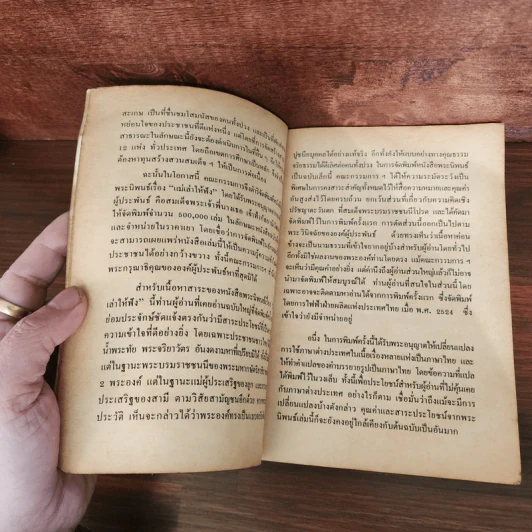 สะเกษ เป็นที่ชื่นชมโสมนัสของคนทั้งปวง และเป็นที่พัก
หย่อนใจของประชาชนที่ดีแห่งหนึ่ง แต่โดยที่การจัดสร้าง
สาธารณะในลักษณะนี้ยังจะต้องดำเนินการในที่อื่น ๆ อีก
12 แห่ง ทั่วประเทศ โดยถือเขตการศึกษาเป็นหลัก
ต้องหาทุนสร้างสวนสมเด็จ ฯ ให้เพียงพอ
ฉะนั้นในโอกาสนี้ คณะกรรมการจึงดำริจัดพิมพ์
พระนิพนธ์เรื่อง “แม่เล่าให้ฟัง” โดยได้รับพระอนุญาต
ผู้ประพันธ์ คือสมเด็จพระเจ้าพี่นางเธอ เจ้าฟ้า
ให้จัดพิมพ์จำนวน 500,000 เล่ม ในลักษณะหนังสือ
และจำหน่ายในราคาเยา โดยเชื่อว่า
จะสามารถเผยแพร่หนังสือเล่มนี้ให้เป็นความรู้
ประชาชนได้อย่างกว้างขวาง ทั้งนี้คณะกรรมการ
พระกรุณาธิคุณขององค์ผู้ประพันธ์หาที่สุดมิได้
สำหรับเนื้อหาสาระของหนังสือพระนิพนธ์
เล่าให้ฟัง” นี้ท่านผู้อ่านที่เคยอ่านฉบับใหญ่
ย่อมประจักษ์ชัดแจ้งตรงกันว่ามีสาระประโยชน์
ความเข้าใจที่ดีอย่างยิ่ง โดยเฉพาะประชาชนชาว
น้ำพระทัย พระจริยาวัตร อันงดงามหาที่เปรียบมิได้
แต่ในฐานะพระบรมราชชนนีของพระมหากษัตริย์
2 พระองค์ แต่ในฐานะแม่ผู้ประเสริฐของลูก และภรรยา
ประเสริฐของสามี ตามวิสัยสามัญชนอีกด้วย
ประวัติ เห็นจะกล่าวได้ว่าพระองค์ทรงเป็นแบบ
ปูชนียบุคคลได้อย่างแท้จริง อีกทั้งยังให้แบบอย่างทางคุณธรรม
จริยธรรมได้ดีแก่คนทั้งปวง ในการจัดพิมพ์หนังสือพระนิพนธ์
เป็นฉบับเล็กนี้ คณะกรรมการ ฯ ได้ให้ความระมัดระวังเป็น
พิเศษในการคงสาระสำคัญทั้งหมดไว้ให้สื่อความหมายและคุณค่า
อันสูงส่งไว้โดยครบถ้วน ยกเว้นส่วนที่เกี่ยวกับความคิดเชิง
ปรัชญาตะวันตก ที่สมเด็จพระบรมราชชนนีโปรด และได้คัดมา
จัดพิมพ์ไว้ในการพิมพ์ครั้งแรก การตัดส่วนนี้ออกเป็นไปตาม
พระวินิจฉัยขององค์ผู้ประพันธ์ ด้วยทรงเห็นว่าเนื้อหาค่อน
ข้างจะเป็นนามธรรมที่เข้าใจยากอยู่บ้างสำหรับผู้อ่านโดยทั่วไป
อีกทั้งมิใช่ผลงานของพระองค์ท่านโดยตรง แม้คณะกรรมการ ฯ
จะเห็นว่ามีคุณค่าอย่างยิ่ง แต่คำนึงถึงผู้อ่านส่วนใหญ่แล้วก็ไม่อาจ
นำมาจัดพิมพ์ให้สมบูรณ์ได้ ท่านผู้อ่านที่สนใจในส่วนนี้โดย
เฉพาะอาจจะติดตามหาอ่านได้จากการพิมพ์ครั้งแรก ซึ่งจัดพิมพ์
โดยการไฟฟ้าฝ่ายผลิตแห่งประเทศไทย เมื่อ พ.ศ. 2524 ซึ่ง
เข้าใจว่ายังมีจำหน่ายอยู่
อนึ่ง ในการพิมพ์ครั้งนี้ได้รับพระอนุญาตให้เปลี่ยนแปลง
การใช้ภาษาต่างประเทศในเนื้อเรื่องหลายแห่งเป็นภาษาไทย และ
ให้ทำคำแปลของคำบรรยายรูปเป็นภาษาไทย โดยข้อความที่แปล
ได้พิมพ์ไว้ในวงเล็บ ทั้งนี้เพื่อประโยชน์สำหรับผู้อ่านที่ไม่คุ้นเคย
กับภาษาต่างประเทศ อย่างไรก็ตาม เชื่อมั่นว่าถึงแม้จะมีการ
เปลี่ยนแปลงบ้างดังกล่าว คุณค่าและสาระประโยชน์จากพระ
นิพนธ์เล่มนี้ก็จะยังคงอยู่ใกล้เคียงกับต้นฉบับเป็นอันมาก